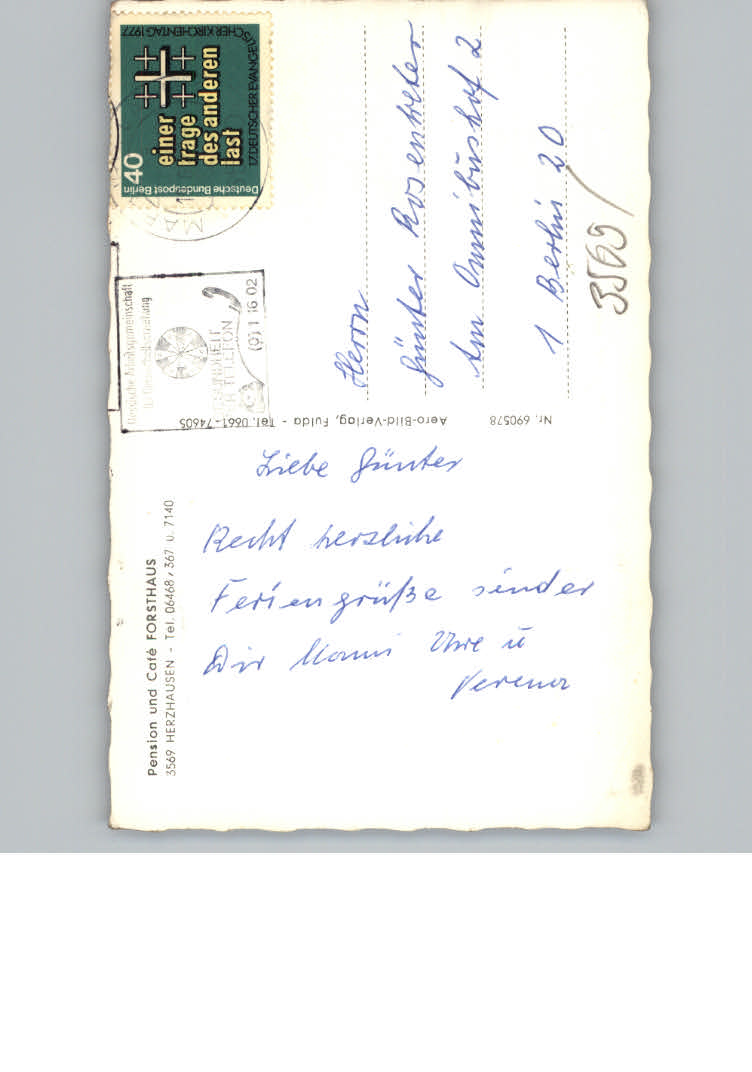 Pension und Café FORSTHAUS
3569 HERZHAUSEN - Tel. 06468 / 367 u. 7140
Liebe Günter
Recht herzliche
Feriengrüße sendet
Dir Mami Uwe u
Verena
Nr. 690578
Aero-Bild-Verlag, Fulda - Tel. 0661-74605
Deutsche Bundespost Berlin
40
einer
trage
des anderen
last
17. DEUTSCHER EVANGELISCHER KIRCHENTAG 1977
GESUNDHEIT
TELEFON
(0) 1 16 02
Herrn
Günter Rosentreter
Am Omnibushof 2
1 Berlin 20
3569/